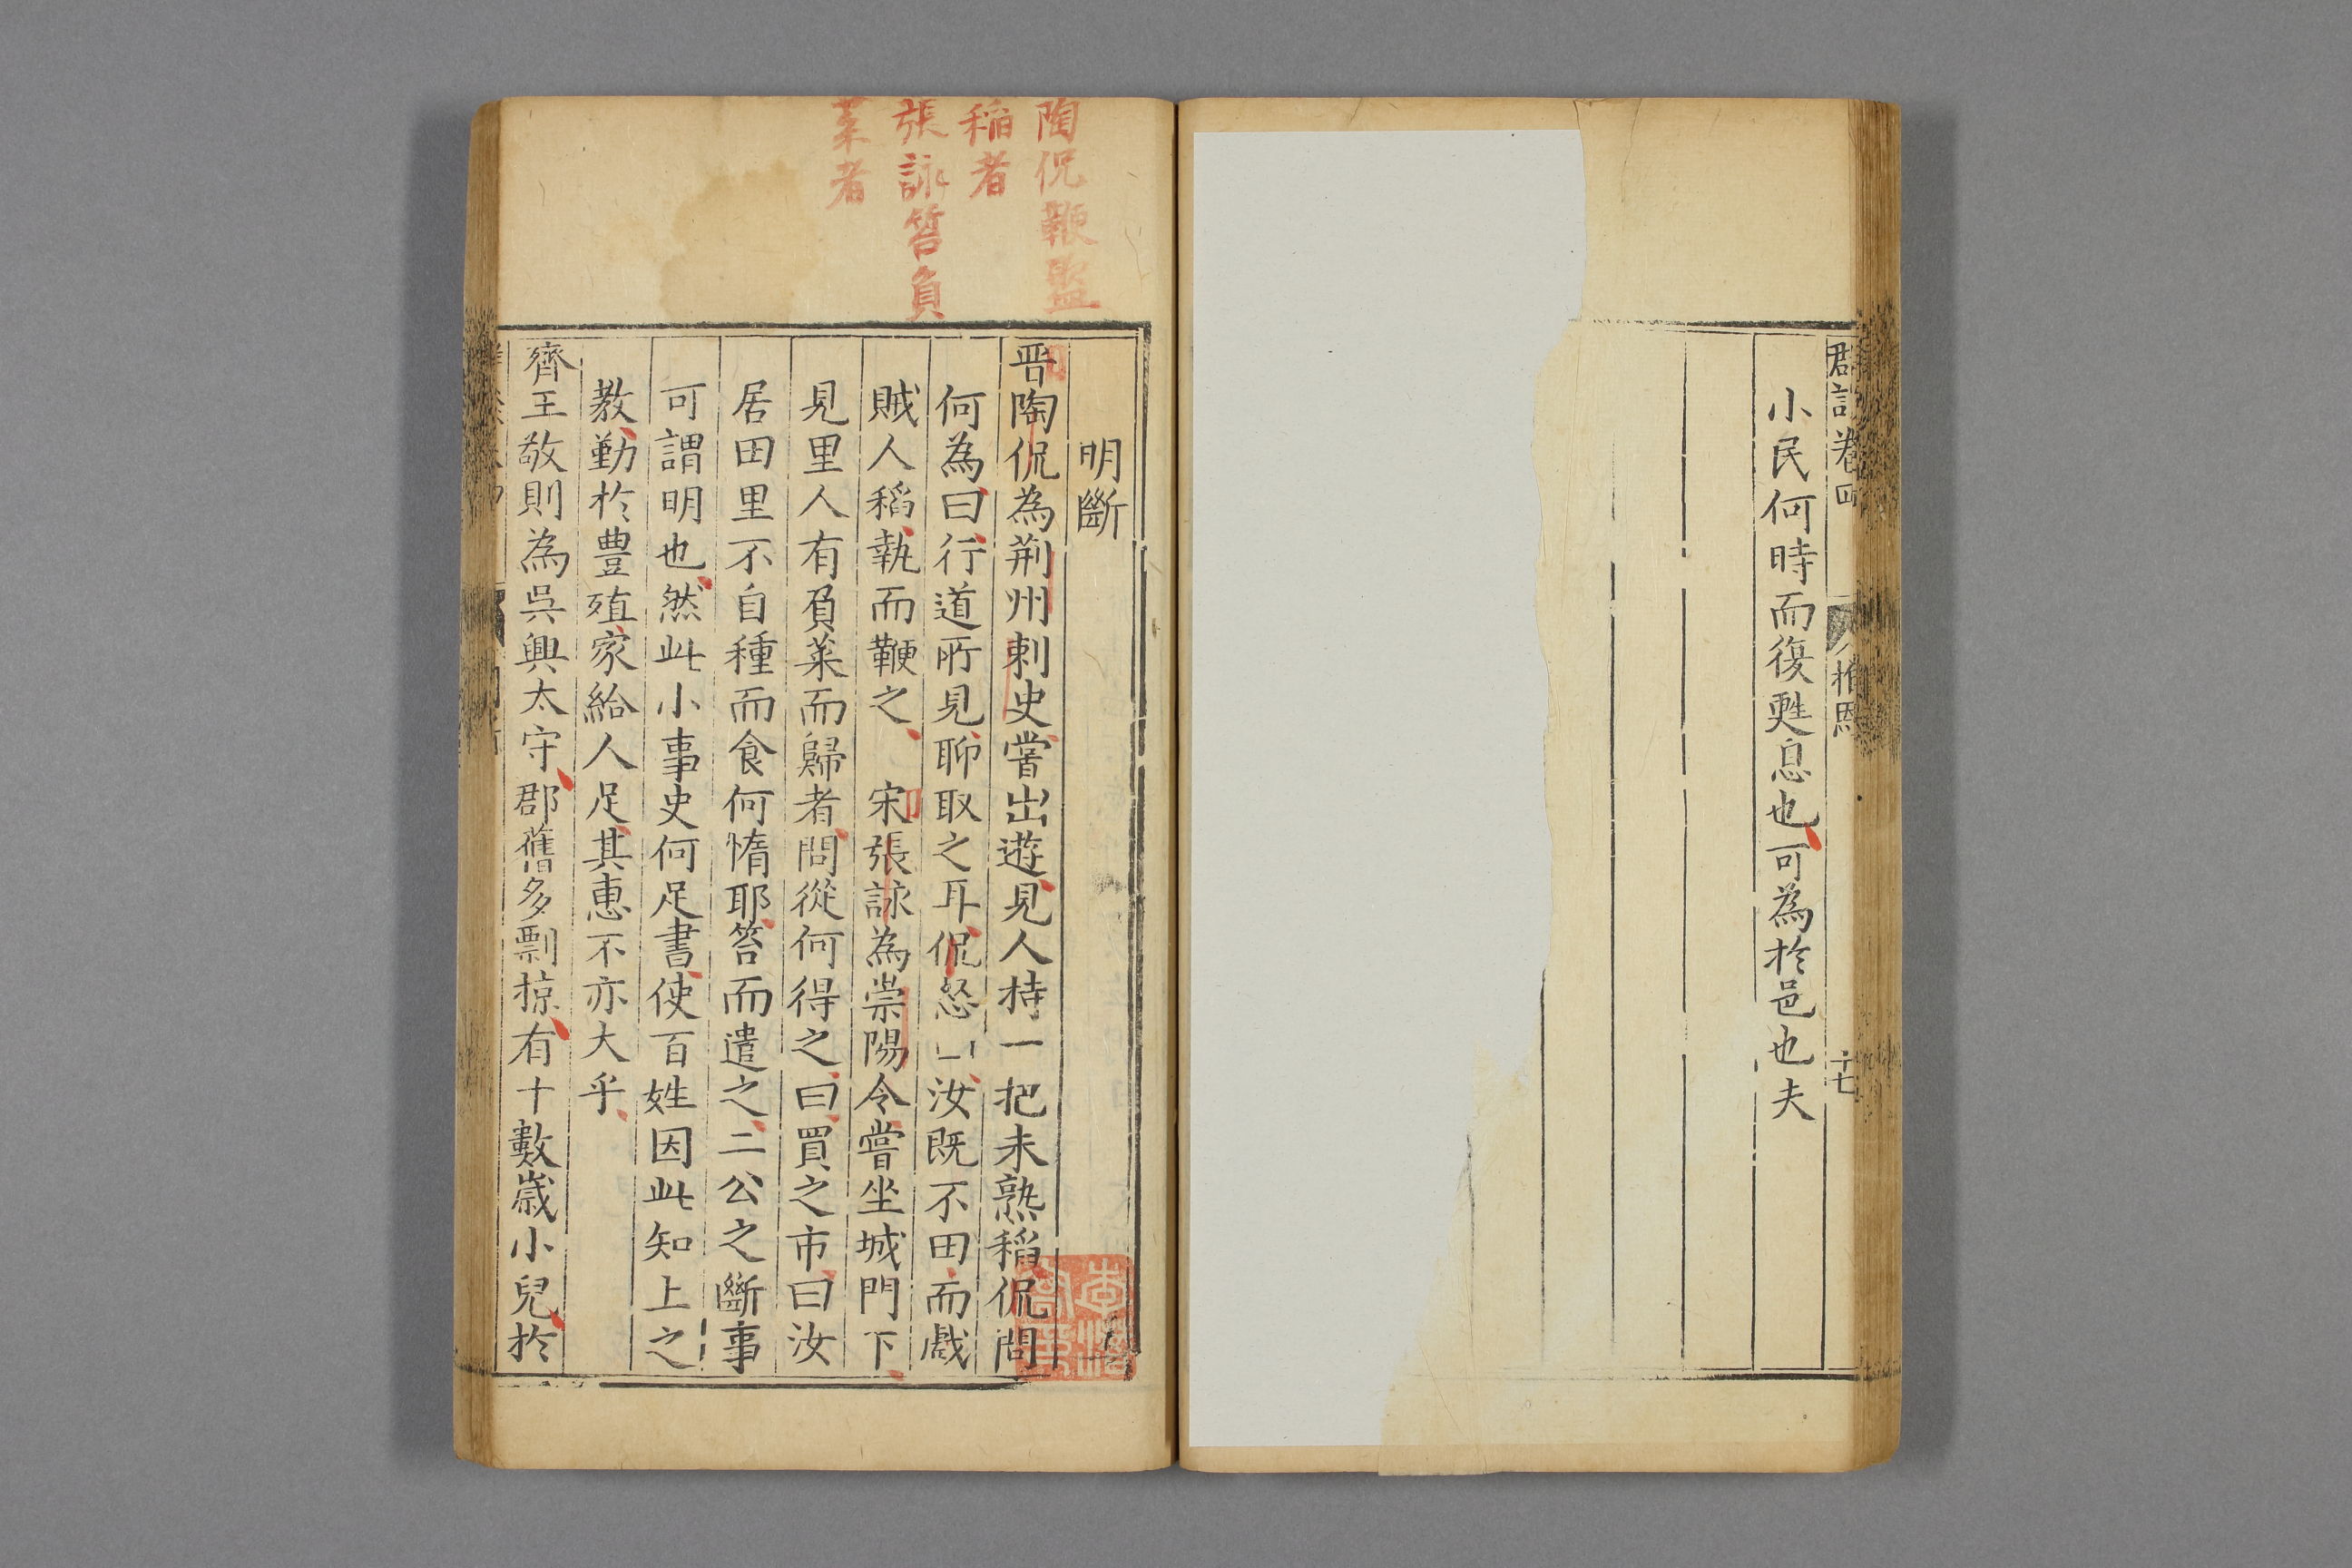 小民何時而復甦息也可為於邑也夫
群記卷四
推恩
十七
陶侃鞭盜
稲者
張詠笞負
菜者
明斷
晋陶侃為荆州刺史嘗出遊見人持一把未熟稲侃問
何為曰行道所見聊取之耳侃怒曰汝既不田而戲
賊人稻執而鞭之 宋張詠為崇陽令嘗坐城門下
見里人有負菜而歸者問從何得之曰買之市曰汝
居田里不自種而食何惰耶笞而遣之二公之斷事
可謂明也然此小事史何足書使百姓因此知上之
教勤於豊殖家給人足其惠不亦大乎
齊王敬則為吳興太守郡舊多剽掠有十數歲小兒於